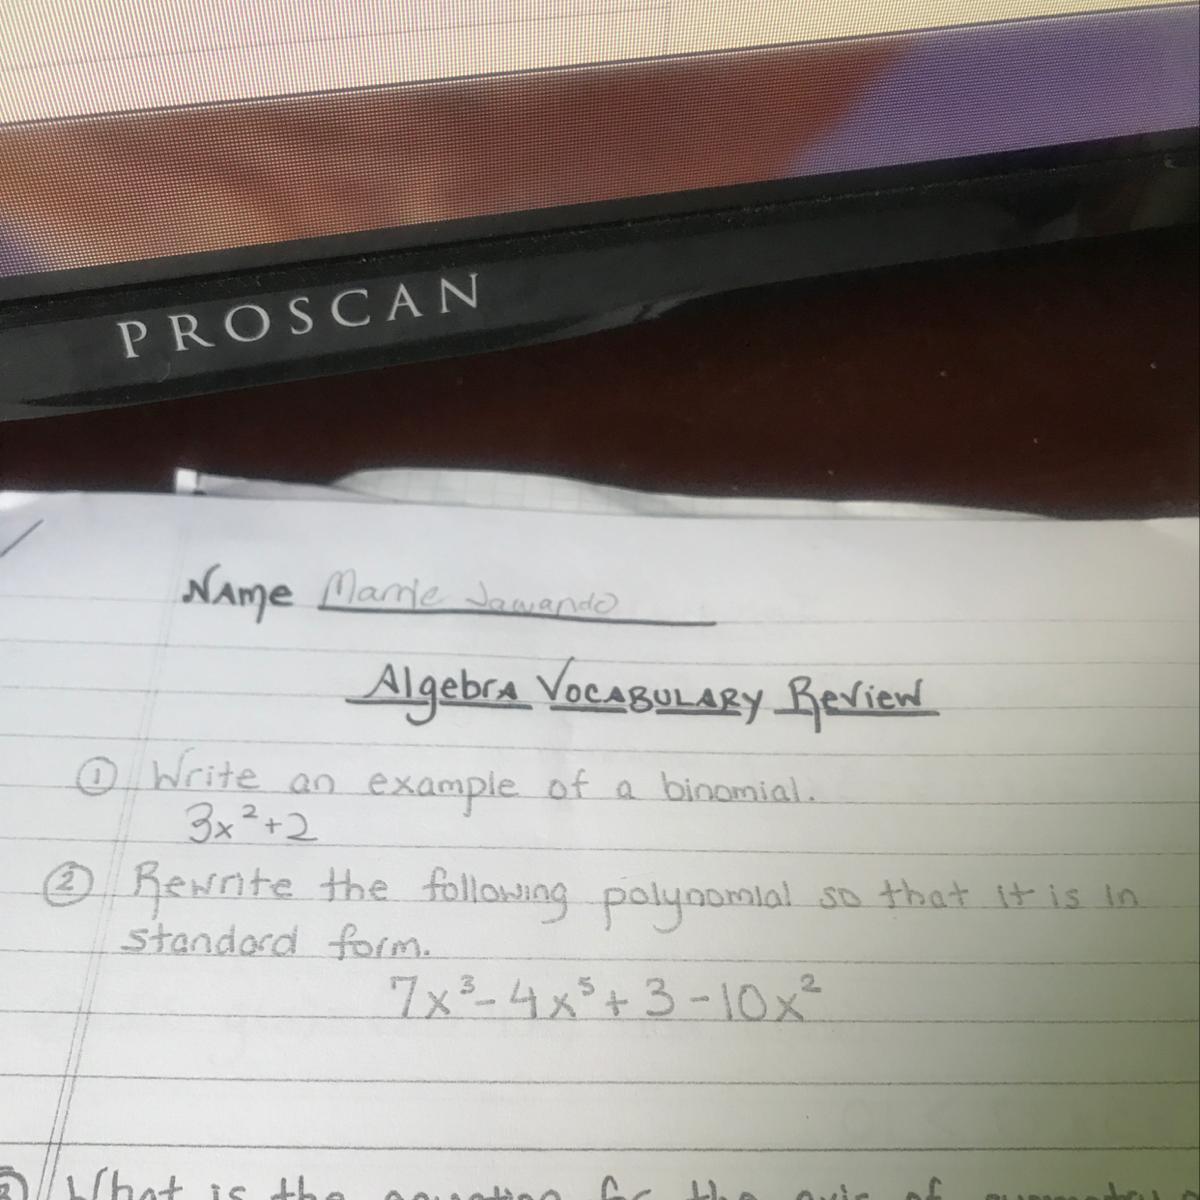 PROSCAN
NAme Marrie Jawando
AlgebrA VOCABULARY Review
① Write an example of a binomial.
3x²+2
② Rewrite the following polynomial so that it is in
standard form.
7x³-4x⁵+3-10x²
What is the equation for the axis of